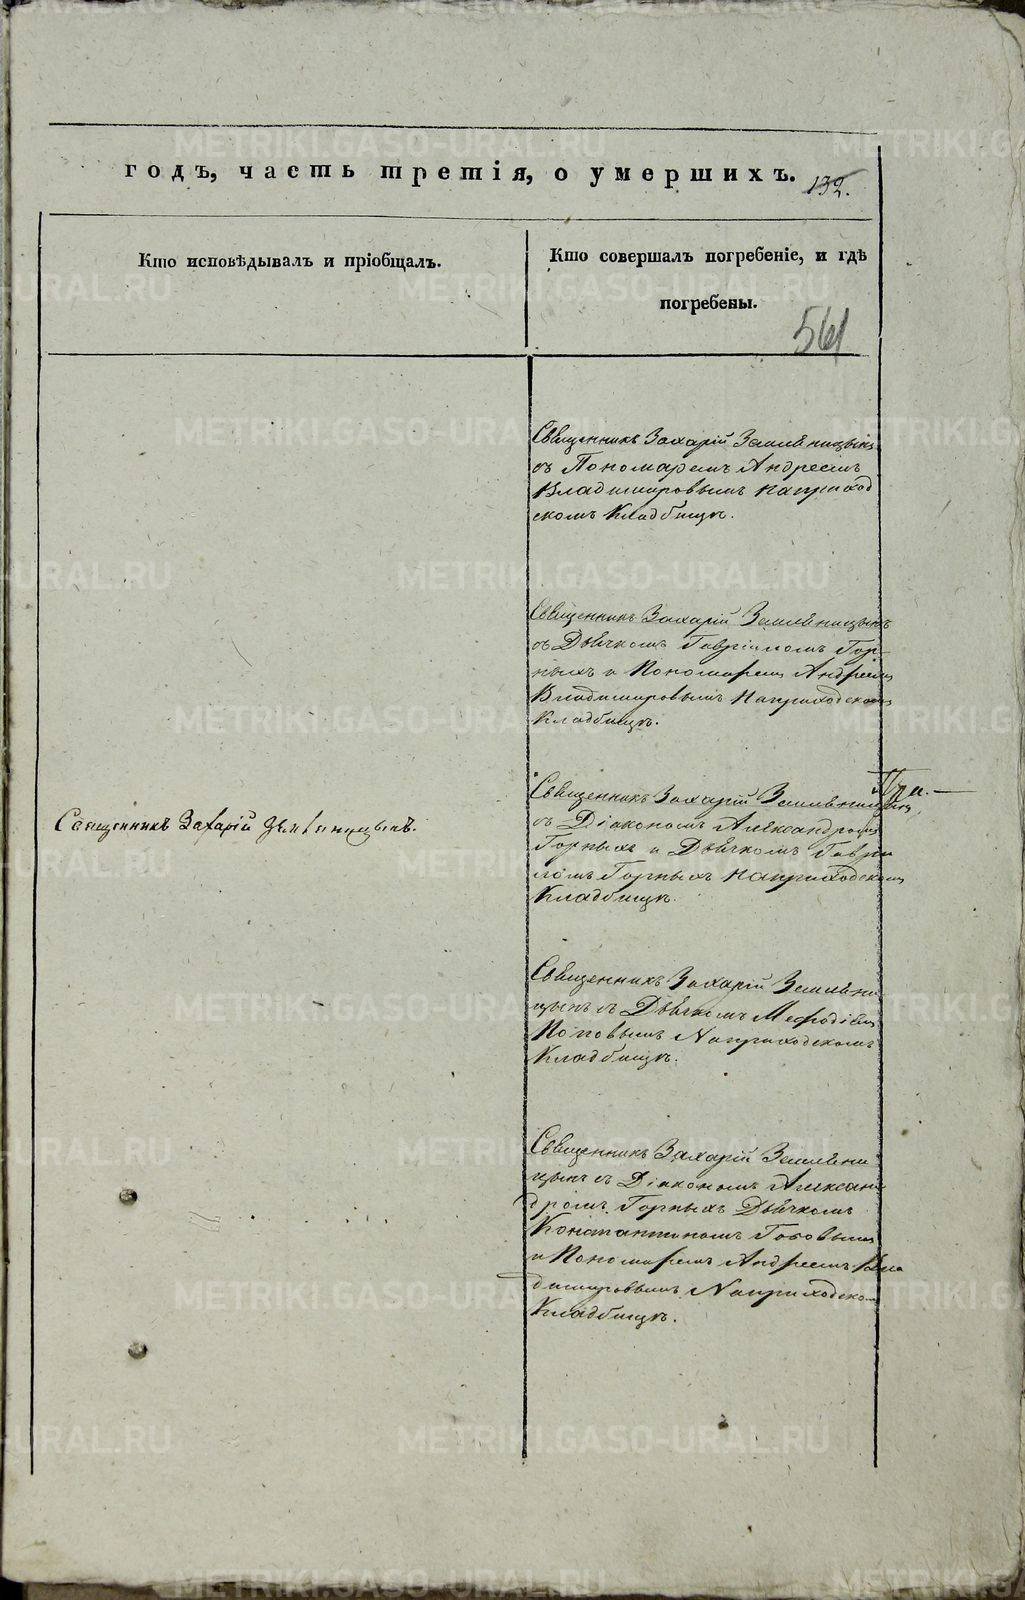 годъ, часть третія, о умершихъ. 132.
Кто исповѣдывалъ и пріобщалъ.
Кто совершалъ погребеніе, и гдѣ
погребены.
561
Священникъ Захарій Земляницынъ
съ Пономаремъ Андреемъ
Владимировымъ наприход
скомъ Кладбищѣ.
Священникъ Захарій Земляницынъ
съ Дьячкомъ Гавріиломъ Гор-
ныхъ и Пономаремъ Андреемъ
Владимировымъ Наприходскомъ
Кладбищѣ.
Три.
Священникъ Захарій Земляницынъ
съ Діакономъ Александромъ
Горныхъ и Дьячкомъ Гаврі
ломъ Горныхъ Наприходскомъ
Кладбищѣ.
Священникъ Захарій Земляницынъ.
Священникъ Захарій Земляни
цынъ съ Дьячкомъ Мефодіемъ
Поповымъ Наприходскомъ
Кладбищѣ.
Священникъ Захарій Земляни
цынъ съ Діакономъ Алексан
дромъ Горныхъ Дьячкомъ
Константиномъ
и Пономаремъ Андреемъ Вла
димировымъ Наприходском
Кладбищѣ.
METRIKI.GASO-URAL.RU